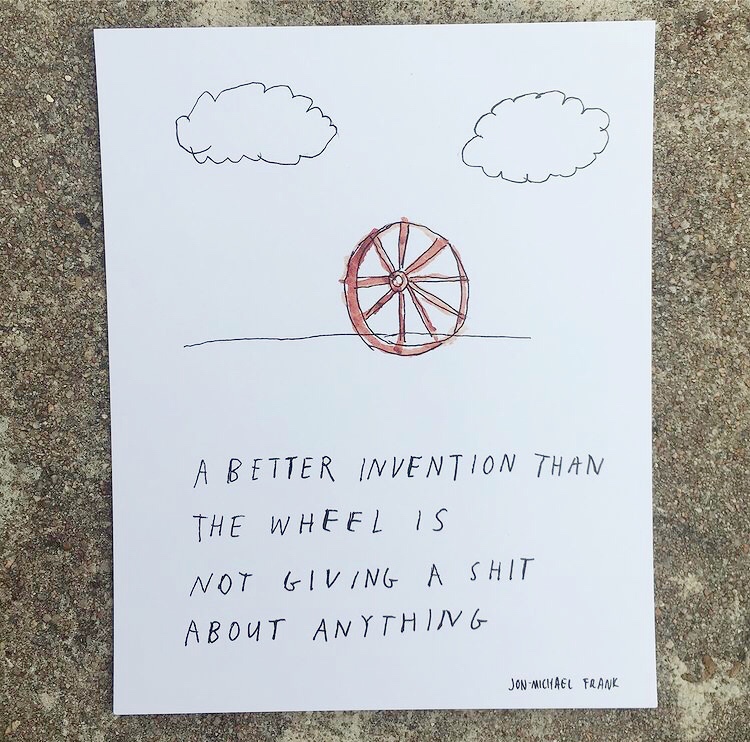 A BETTER INVENTION THAN
THE WHEEL IS
NOT GIVING A SHIT
ABOUT ANYTHING
JON-MICHAEL FRANK